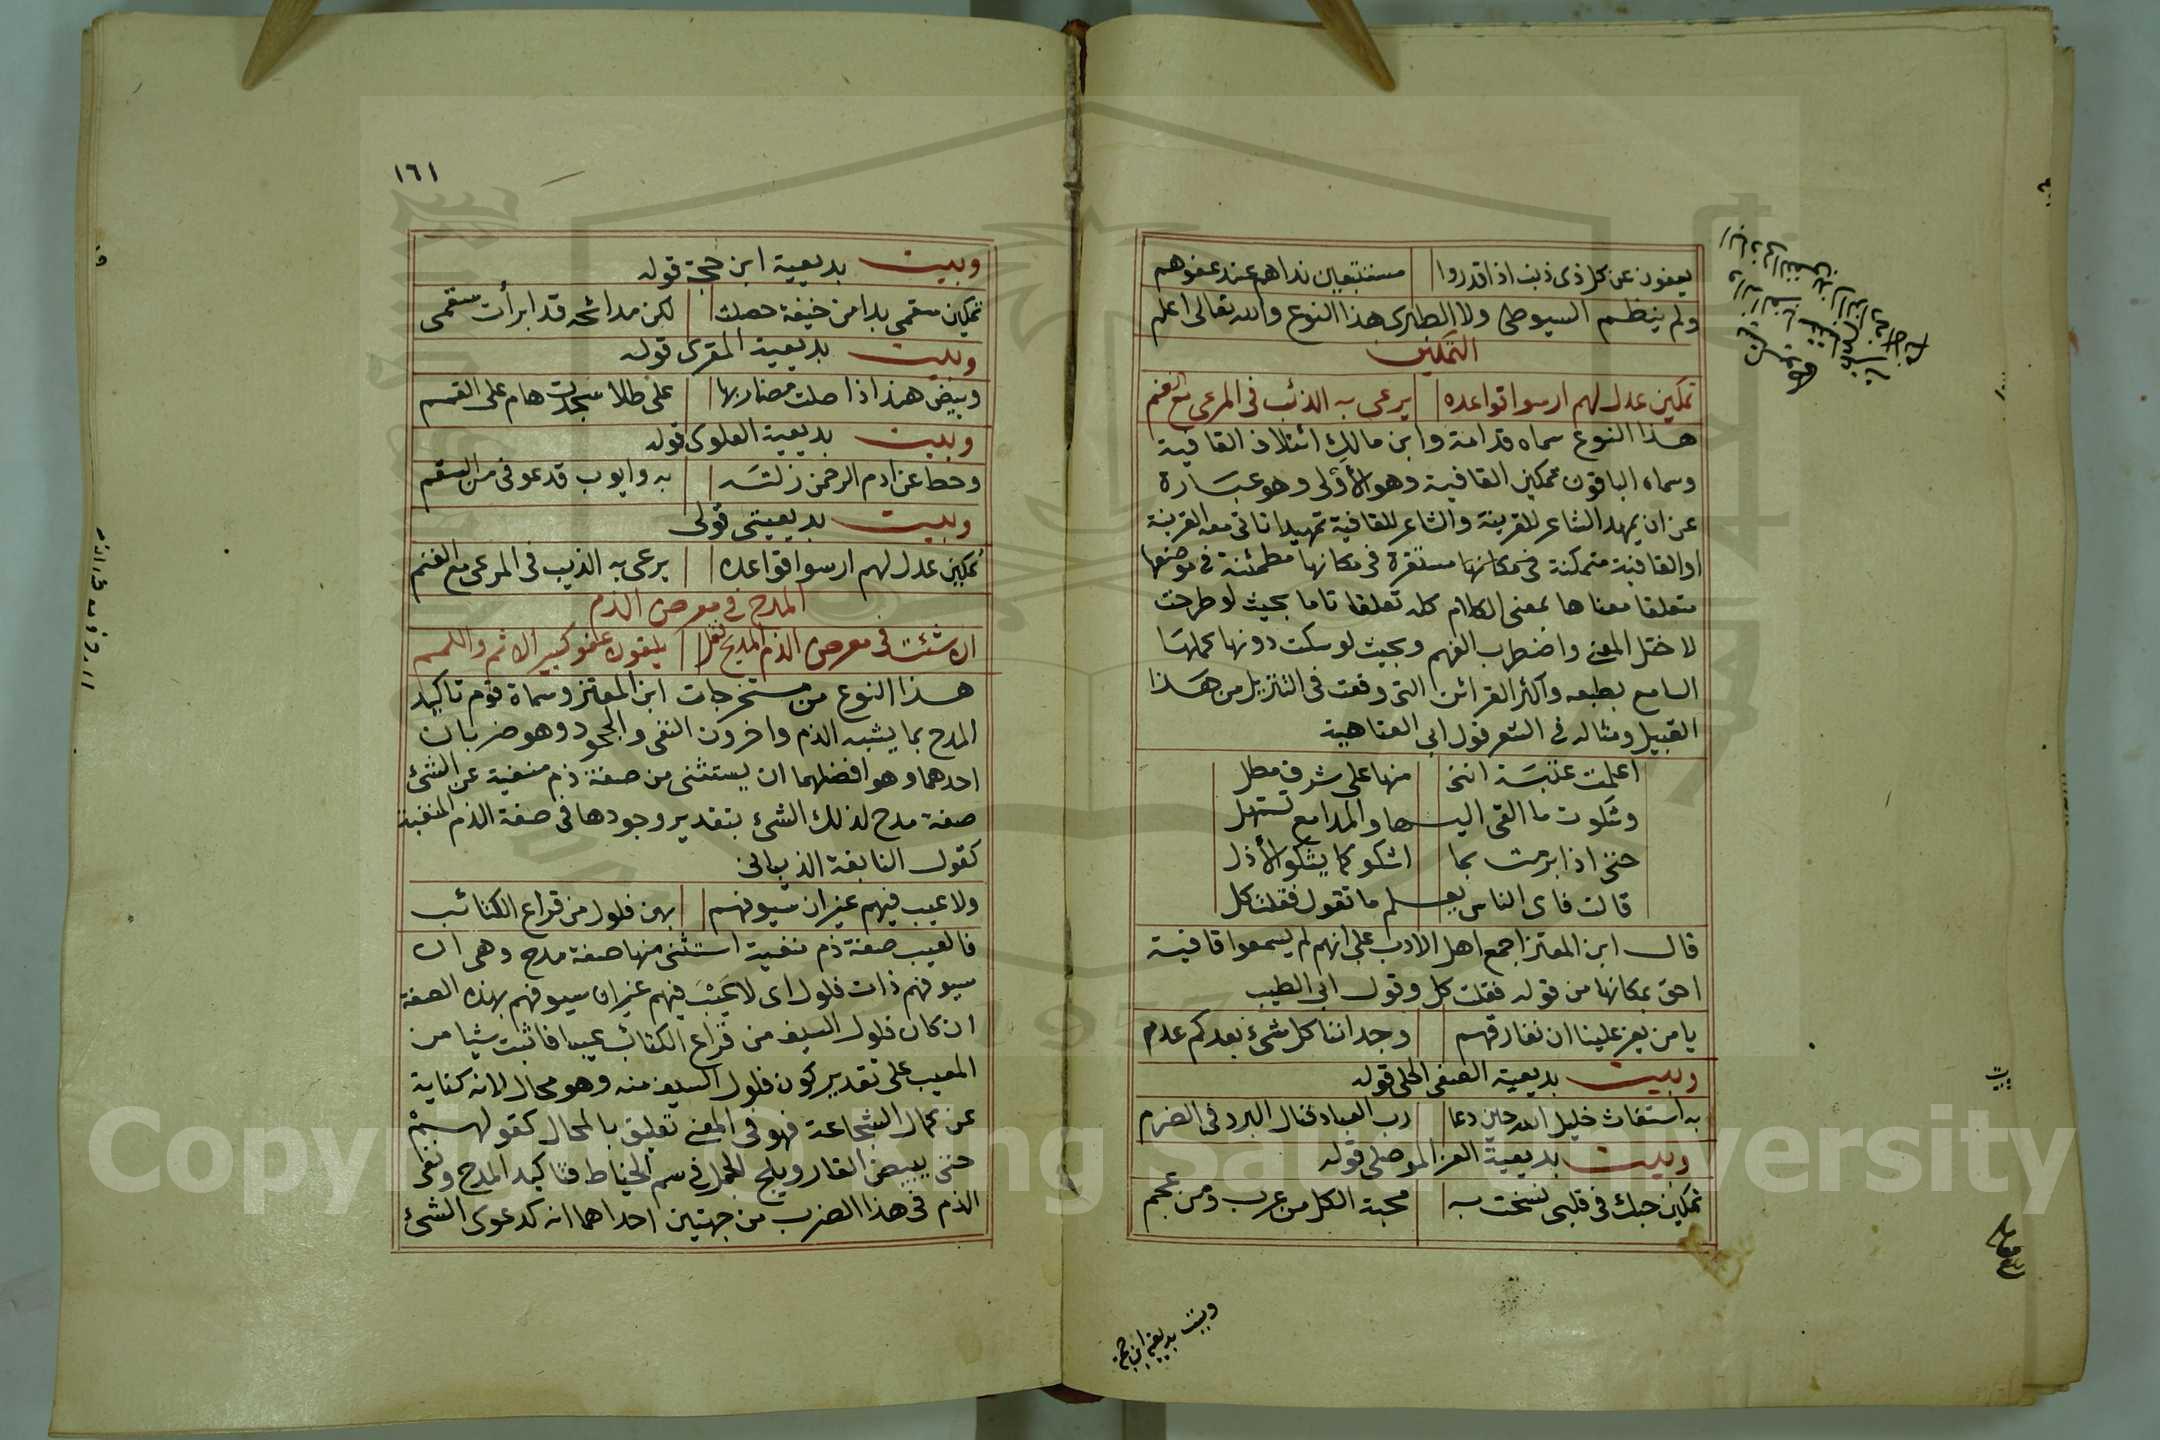 يعفون عن كل ذي ذنب اذا قدروا مستتبعين نداهم عند عفوهم
ولم ينظم السيوطي ولا الطبري هذا النوع والله تعالى اعلم
التمكين
تمكين عدل لهم ارسوا قواعده يرعى به الذئب في المرعى مع الغنم
هذا النوع سماه قدامة وابن مالك ائتلاف القافية
وسماه الباقون تمكين القافية وهو الأولى وهو عبارة
عن ان يمهد الناثر للقرينة والشاعر للقافية تمهيدا تاتي معه القرينة
او القافية متمكنة في مكانها مستقرة في مكانها مطمئنة في موضعها
متعلقا معناها بمعنى الكلام كله تعلقا تاما بحيث لو طرحت
لاختل المعنى واضطرب الفهم وبحيث لو سكت دونها كملها
السامع بطبعه واكثر القرائن التي وقعت في التنزيل من هذا
القبيل ومثاله في الشعر قول ابي العتاهية
اعلمت عتبة انني منها على شرف مطل
وشكوت ما القى اليها والمدامع تستهل
حتى اذا برمت بما اشكو كما يشكو الأذل
قالت فاي الناس يعلم ما تقول فقلت كل
قال ابن المعتز اجمع اهل الادب على انهم لم يسمعوا قافية
احق بمكانها من قوله فقلت كل وقول ابي الطيب
يا من يعز علينا ان نفارقهم وجداننا كل شيء بعدكم عدم
وبيت بديعية الصفي الحلي قوله
به استغاث خليل الله حين دعا رب العباد فنال البرد في الضرم
وبيت بديعية العز الموصلي قوله
تمكين حبك في قلبي نسخت به محبة الكل من عرب ومن عجم
وبيت بديعية ابن حجة
١٦١
وبيت بديعية ابن حجة قوله
تمكين سقمي بدا من خيفة حصلت لكن مدائحه قد ابرأت سقمي
وبيت بديعية المقري قوله
وبيض هند اذا صلت مضاربها على طلا سجدت هام على القمم
وبيت بديعية العلوي قوله
وحط عن ادم الرحمن زلته به وايوب قد عوفي من السقم
وبيت بديعيتي قولي
تمكين عدل لهم ارسوا قواعده يرعى به الذيب في المرعى مع الغنم
المدح في معرض الذم
ان شئت في معرض الذم المديح فقل كبير الاثم واللمم
هذا النوع من مستخرجات ابن المعتز وسماه قوم تاكيد
المدح بما يشبه الذم واخرون النفي والجحود وهو ضربان
احدهما وهو افضلهما ان يستثنى من صفة ذم منفية عن الشئ
صفة مدح لذلك الشئ بتقدير وجودها في صفة الذم المنفية
كقول النابغة الذبياني
ولا عيب فيهم غير ان سيوفهم بهن فلول من قراع الكتائب
فالعيب صفة ذم منفية استثنى منها صفة مدح وهي ان
سيوفهم ذات فلول اي لا عيب فيهم غير ان سيوفهم بهذه الصفة
ان كان فلول السيف من قراع الكتائب عيبا فاثبت شيا من
العيب على تقدير كون فلول السيف منه وهو محال لانه كناية
عن كمال الشجاعة فهو في المعنى تعليق بالمحال كقولهم
حتى يبيض القار ويلج الجمل في سم الخياط فتاكيد المدح ونفي
الذم في هذا الضرب من جهتين احداهما انه كدعوى الشئ
Copyright © King Saud University
1957